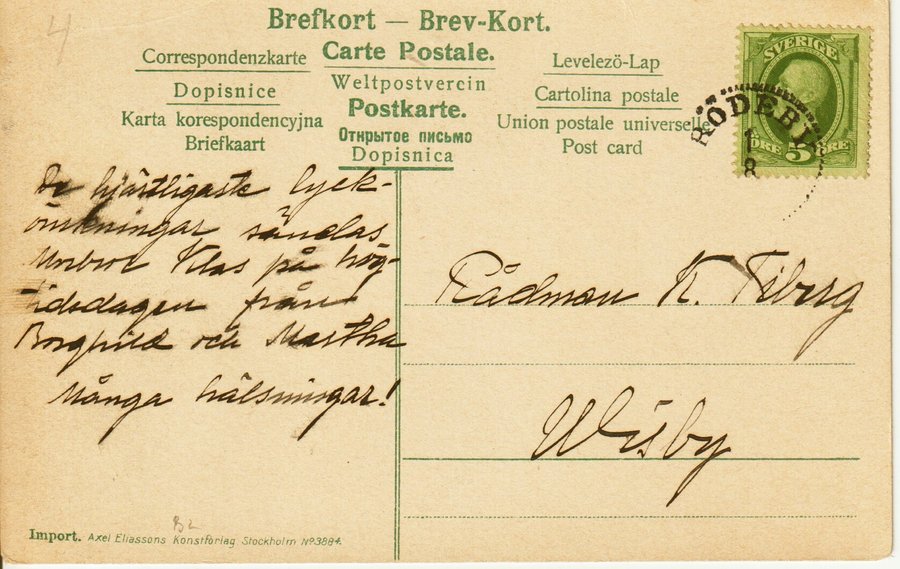 4
Brefkort — Brev-Kort.
Correspondenzkarte
Carte Postale.
Levelezö-Lap
Dopisnice
Weltpostverein
Cartolina postale
Karta korespondencyjna
Postkarte.
Union postale universelle
Briefkaart
Открытое письмо
Post card
Dopisnica
SVERIGE
ÖRE 5 ÖRE
RÖDEBY
1
8
De hjärtligaste lyck-
önskningar sändas
Morbror Klas på hög-
tidsdagen från
Borghild och Martha
Många hälsningar!
Rådman K. Fiberg
Wisby
Import. Axel Eliassons Konstförlag Stockholm No 3884.